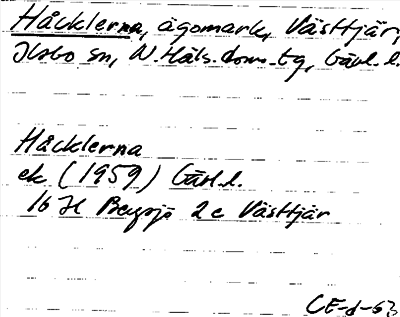 Håcklerna, ägomark, Västtjär,
Ilsbo sn, N. Häls. doms. tg, Gävl. l.
Håcklerna
ek (1959) Gävl. l.
16 H Bergsjö 2 c Västtjär
CE-d-63